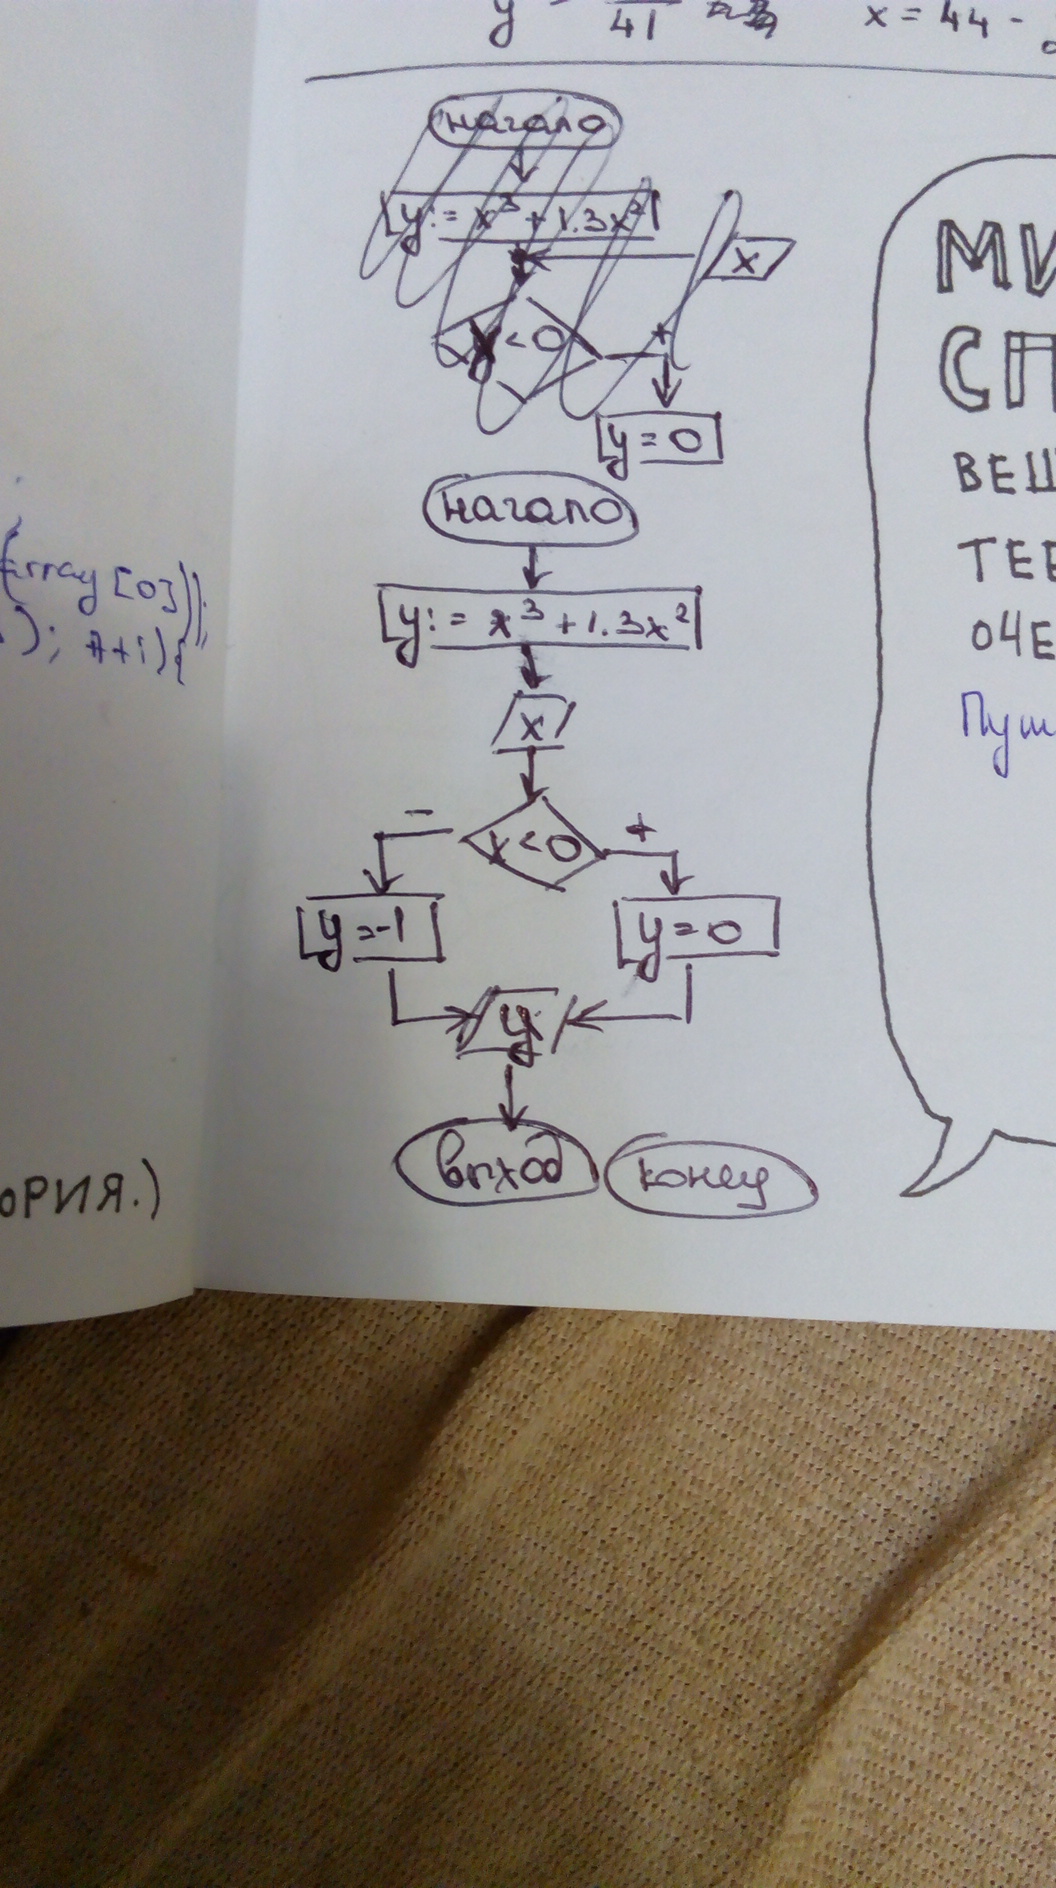 y 41 x = 44 -
начало
y := x³ + 1.3x²
x
x < 0
+
y = 0
начало
y := x³ + 1.3x²
x
- x < 0 +
y = -1 y = 0
y
выход конец
array [0]);
ОРИЯ.)
МИ
СП
ВЕШ
ТЕБ
ОЧЕ
Пуш